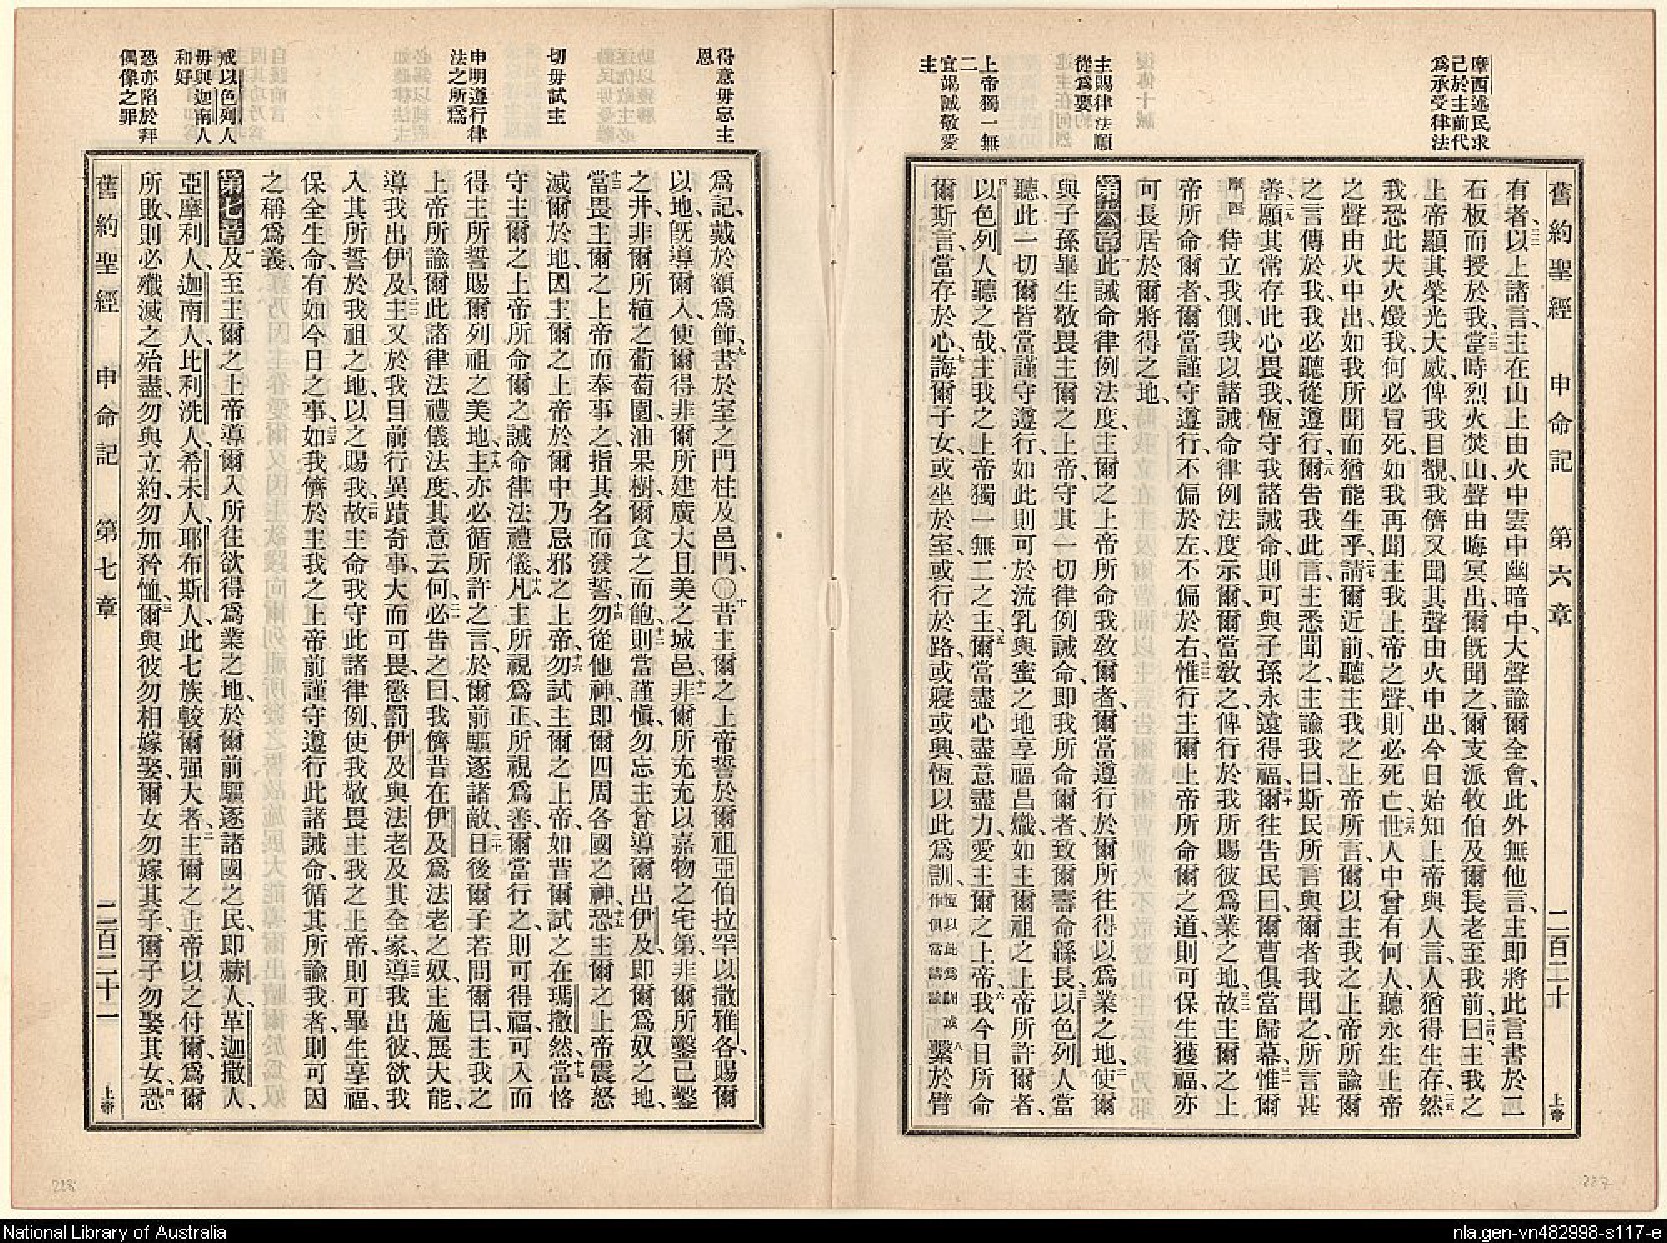 舊約聖經 申命記 第六章 二百二十 上帝
摩西述民求
己於主前代
爲承受律法
主賜律法願
從爲要
上帝獨一無
二
宜竭誠敬愛
主
有者以上諸言主在山上由火中雲中幽暗中大聲諭爾全會此外無他言主即將此言書於二
石板而授於我當時烈火焚山聲由晦冥出爾旣聞之爾支派牧伯及爾長老至我前曰主我之
上帝顯其榮光大威俾我目覩我儕又聞其聲由火中出今日始知上帝與人言人猶得生存然
我恐此大火燬我何必冒死如我再聞主我上帝之聲則必死亡世人中曾有何人聽永生上帝
之聲由火中出如我所聞而猶能生乎請爾近前聽主我之上帝所言爾以主我之上帝所諭爾
之言傳於我我必聽從遵行爾告我此言主悉聞之主諭我曰斯民所言與爾者我聞之所言甚
善願其常存此心畏我恆守我諸誡命則可與子孫永遠得福爾往告民曰爾曹俱當歸幕惟爾
侍立我側我以諸誡命律例法度示爾爾當敎之俾行於我所賜彼爲業之地故主爾之上
帝所命爾者爾當謹守遵行不偏於左不偏於右惟行主爾上帝所命爾之道則可保生獲福亦
可長居於爾將得之地
第六章此誡命律例法度主爾之上帝所命我敎爾者爾當遵行於爾所往得以爲業之地使爾
與子孫畢生敬畏主爾之上帝守其一切律例誡命即我所命爾者致爾壽命緜長以色列人當
聽此一切爾皆當謹守遵行如此則可於流乳與蜜之地享福昌熾如主爾祖之上帝所許爾者
以色列人聽之哉主我之上帝獨一無二之主爾當盡心盡意盡力愛主爾之上帝我今日所命
爾斯言當存於心誨爾子女或坐於室或行於路或寢或興恆以此爲訓繫於臂
得意毋忘主
恩
切毋試主
申明遵行律
法之所爲
戒以色列人
毋與迦南人
和好
恐亦陷於拜
偶像之罪
爲記戴於額爲飾書於室之門柱及邑門〇昔主爾之上帝誓於爾祖亞伯拉罕以撒雅各賜爾
以地旣導爾入使爾得非爾所建廣大且美之城邑非爾所充充以嘉物之宅第非爾所鑿已鑿
之井非爾所植之葡萄園油果樹爾食之而飽則當謹愼勿忘主曾導爾出伊及即爾爲奴之地
當畏主爾之上帝而奉事之指其名而發誓勿從他神即爾四周各國之神恐主爾之上帝震怒
滅爾於地因主爾之上帝於爾中乃忌邪之上帝勿試主爾之上帝如昔爾試之在瑪撒然當恪
守主爾之上帝所命爾之誡命律法禮儀凡主所視爲正所視爲善爾當行之則可得福可入而
得主所誓賜爾列祖之美地主亦必循所許之言於爾前驅逐諸敵日後爾子若問爾曰主我之
上帝所諭爾此諸律法禮儀法度其意云何必告之曰我儕昔在伊及爲法老之奴主施展大能
導我出伊及主又於我目前行異蹟奇事大而可畏懲罰伊及與法老及其全家導我出彼欲我
入其所誓於我祖之地以之賜我故主命我守此諸律例使我敬畏主我之上帝則可畢生享福
保全生命有如今日之事如我儕於主我之上帝前謹守遵行此諸誡命循其所諭我者則可因
之稱爲義
第七章及至主爾之上帝導爾入所往欲得爲業之地於爾前驅逐諸國之民即赫人革迦撒人
亞摩利人迦南人比利洗人希未人耶布斯人此七族較爾强大者主爾之上帝以之付爾爲爾
所敗則必殲滅之殆盡勿與立約勿加矜恤爾與彼勿相嫁娶爾女勿嫁其子爾子勿娶其女恐
舊約聖經 申命記 第七章 二百二十一 上帝
228
227
National Library of Australia
nla.gen-vn482998-s117-e